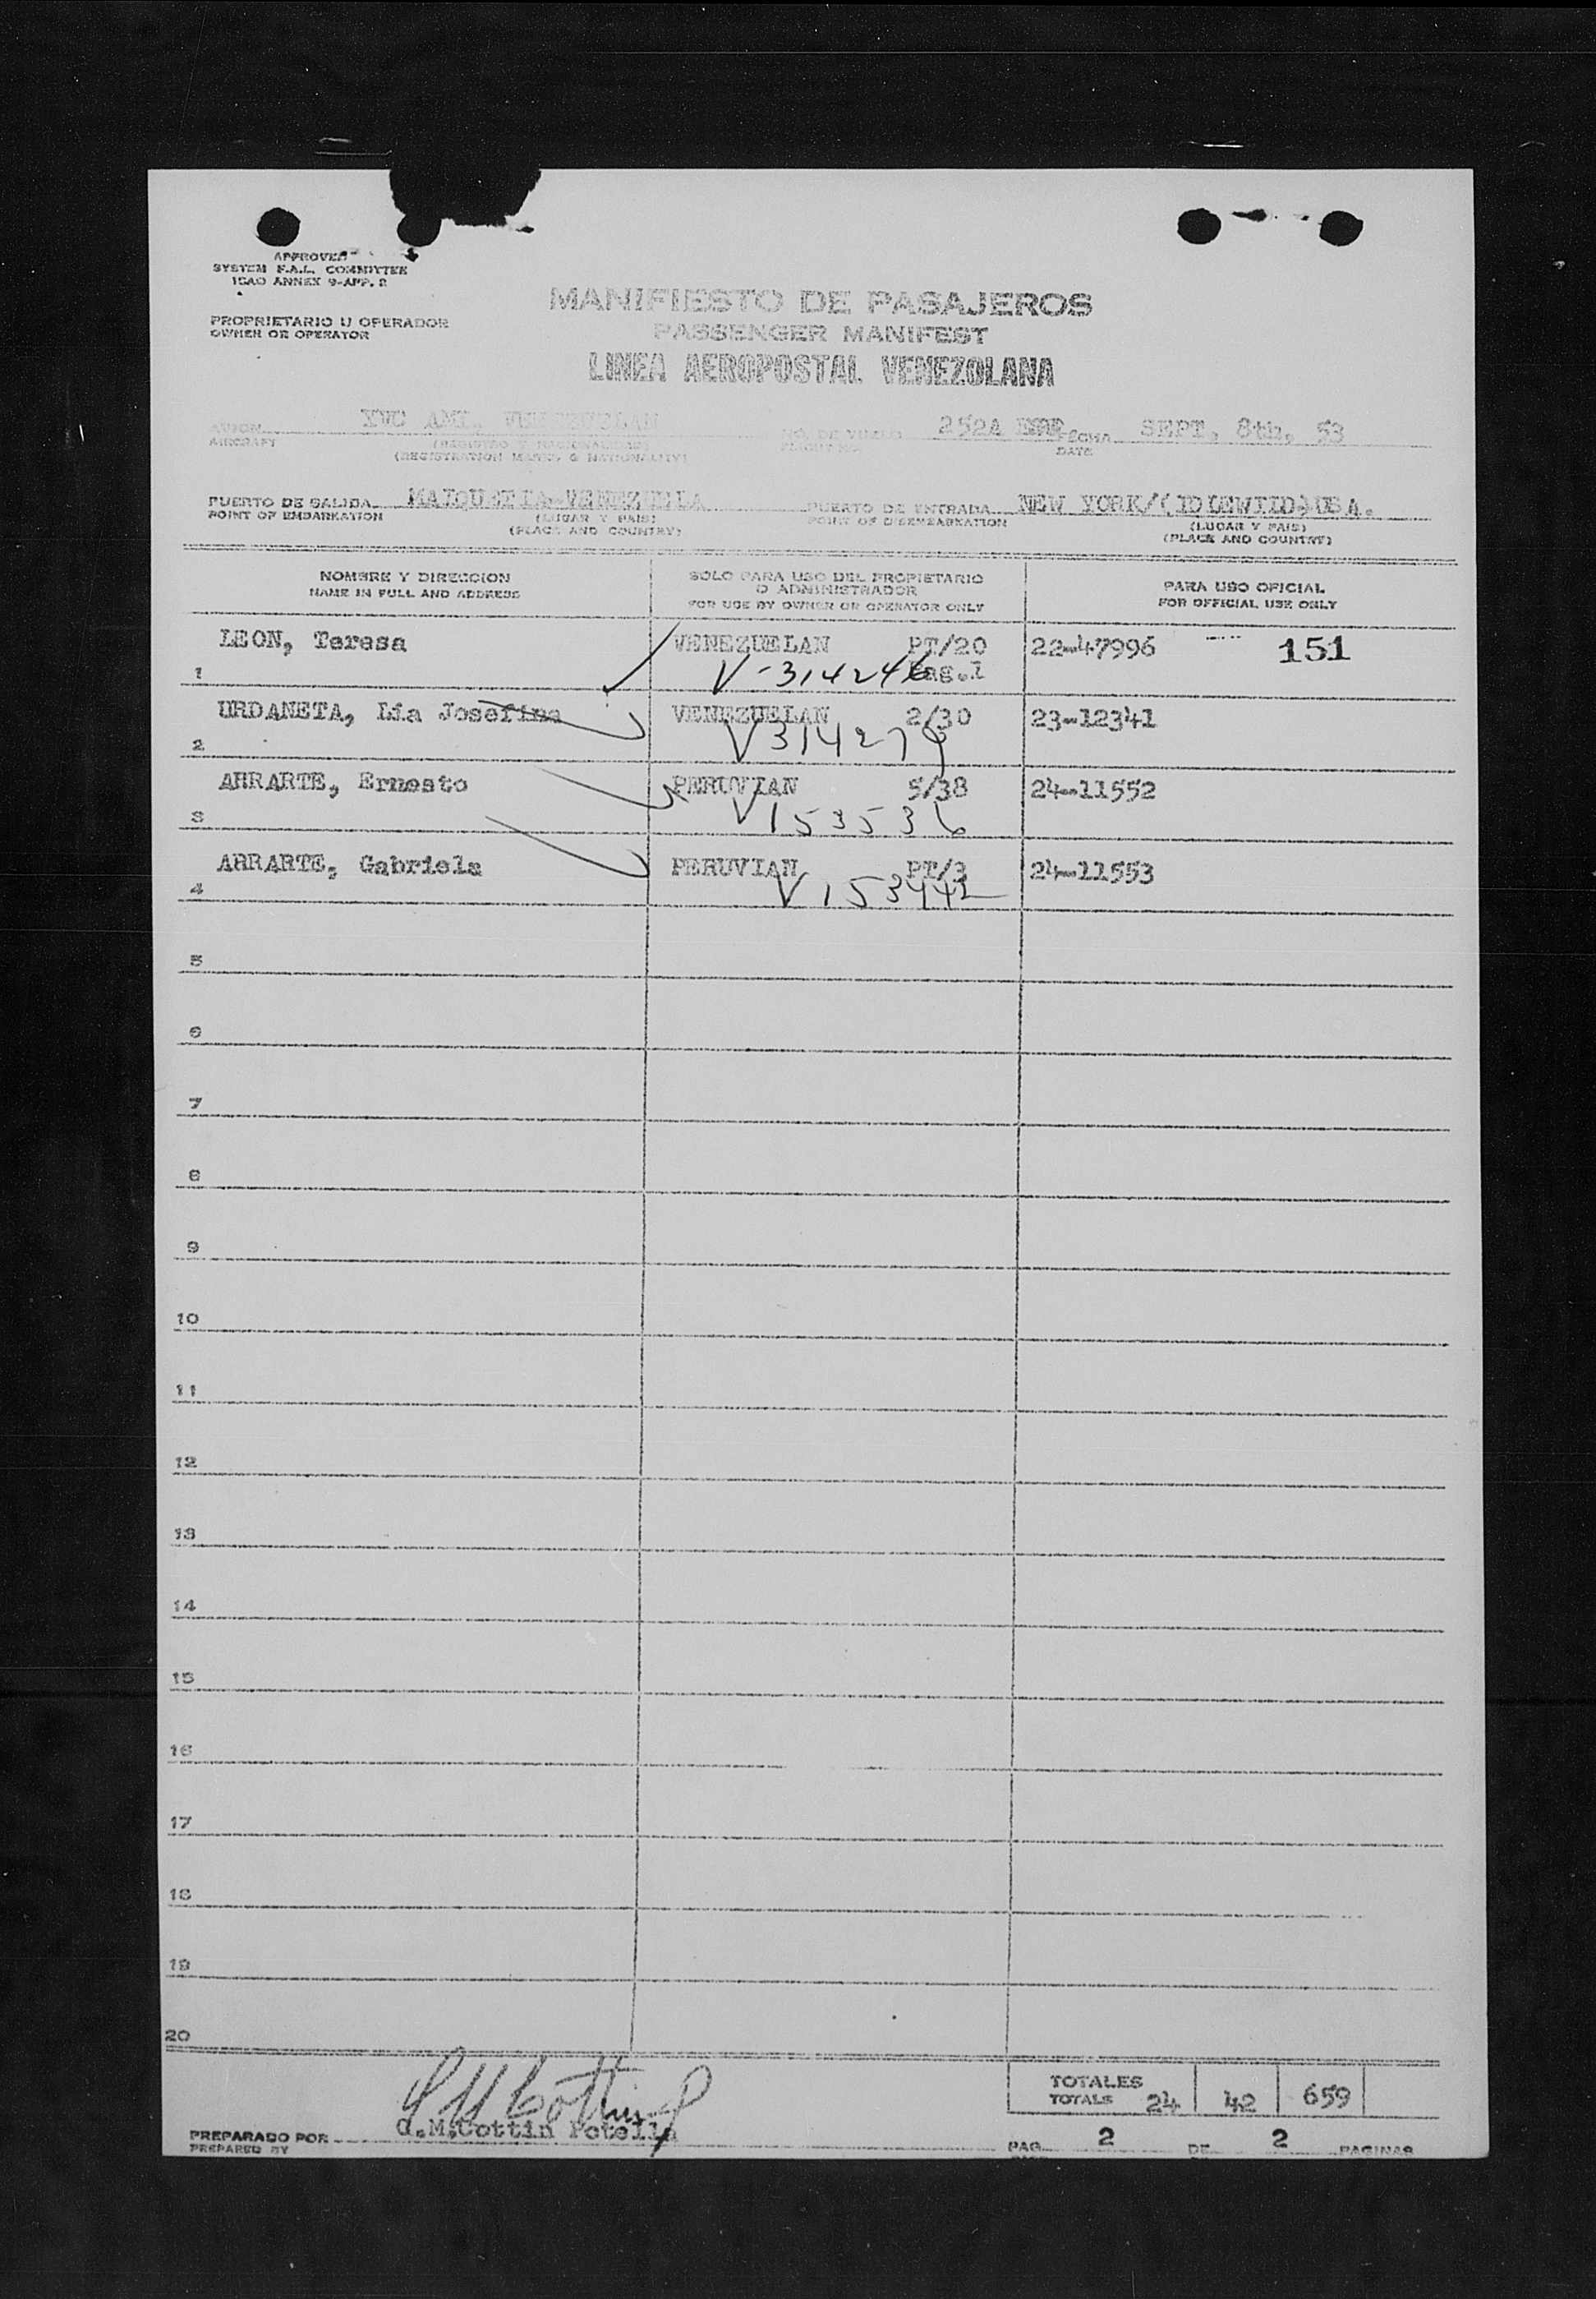 APPROVED
SYSTEM F.A.L. COMMITTEE
ICAO ANNEX 9-APP. 2
PROPRIETARIO U OPERADOR
OWNER OR OPERATOR
MANIFIESTO DE PASAJEROS
PASSENGER MANIFEST
LINEA AEROPOSTAL VENEZOLANA
AVION YVC AML. VENEZUELAN NO. DE VUELO 252A FECHA SEPT, 8th, 53
AIRCRAFT (REGISTRO Y NACIONALIDAD) FLIGHT NO. DATE
(REGISTRATION MARKS & NATIONALITY)
PUERTO DE SALIDA MAIQUETIA-VENEZUELA PUERTO DE ENTRADA NEW YORK/(IDLEWILD)USA.
POINT OF EMBARKATION (LUGAR Y PAIS) POINT OF DISEMBARKATION (LUGAR Y PAIS)
(PLACE AND COUNTRY) (PLACE AND COUNTRY)
NOMBRE Y DIRECCION
NAME IN FULL AND ADDRESS
SOLO PARA USO DEL PROPIETARIO
O ADMINISTRADOR
FOR USE BY OWNER OR OPERATOR ONLY
PARA USO OFICIAL
FOR OFFICIAL USE ONLY
LEON, Teresa VENEZUELAN PT/20 22-47996 151
1 V-314246 Pag.1
URDANETA, Lia Josefina VENEZUELAN 2/30 23-12341
2 V314279
ARRARTE, Ernesto PERUVIAN 5/38 24-11552
3 V153536
ARRARTE, Gabriela PERUVIAN PT/3 24-11553
4 V153442
5
6
7
8
9
10
11
12
13
14
15
16
17
18
19
20
TOTALES
TOTALS 24 42 659
G.M.Cottin Potella
PREPARADO POR
PREPARED BY
PAG. 2 DE 2 PAGINAS